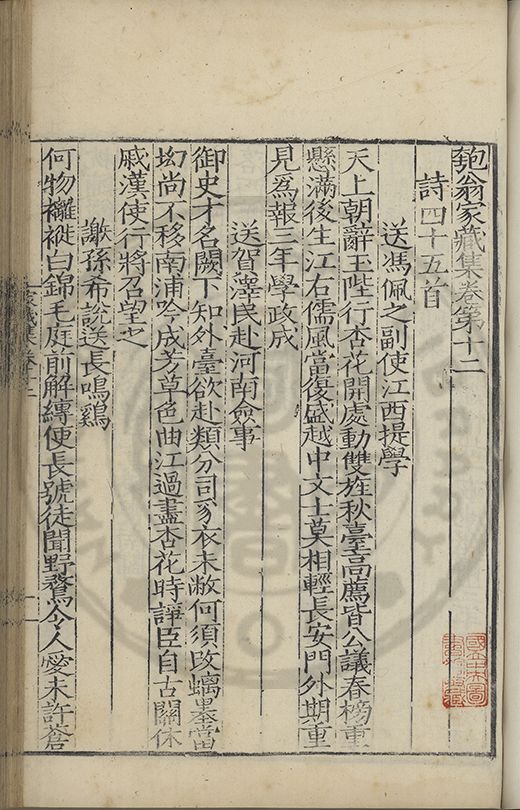 匏翁家藏集卷第十二
詩四十五首
送馮佩之副使江西提學
天上朝辭玉陛行杏花開處動雙旌秋臺高薦皆公議春榜重
懸滿後生江右儒風當復盛越中文士莫相輕長安門外期重
見爲報三年學政成
送賀澤民赴河南僉事
御史才名闕下知外臺欲赴類分司豸衣未敝何須改螭墨當
坳尚不移南浦吟成芳草色曲江過盡杏花時諍臣自古關休
戚漢使行將召望之
謝孫希說送長鳴鷄
何物襬褷白錦毛庭前解縳便長號徒聞野鶩令人愛未許蒼